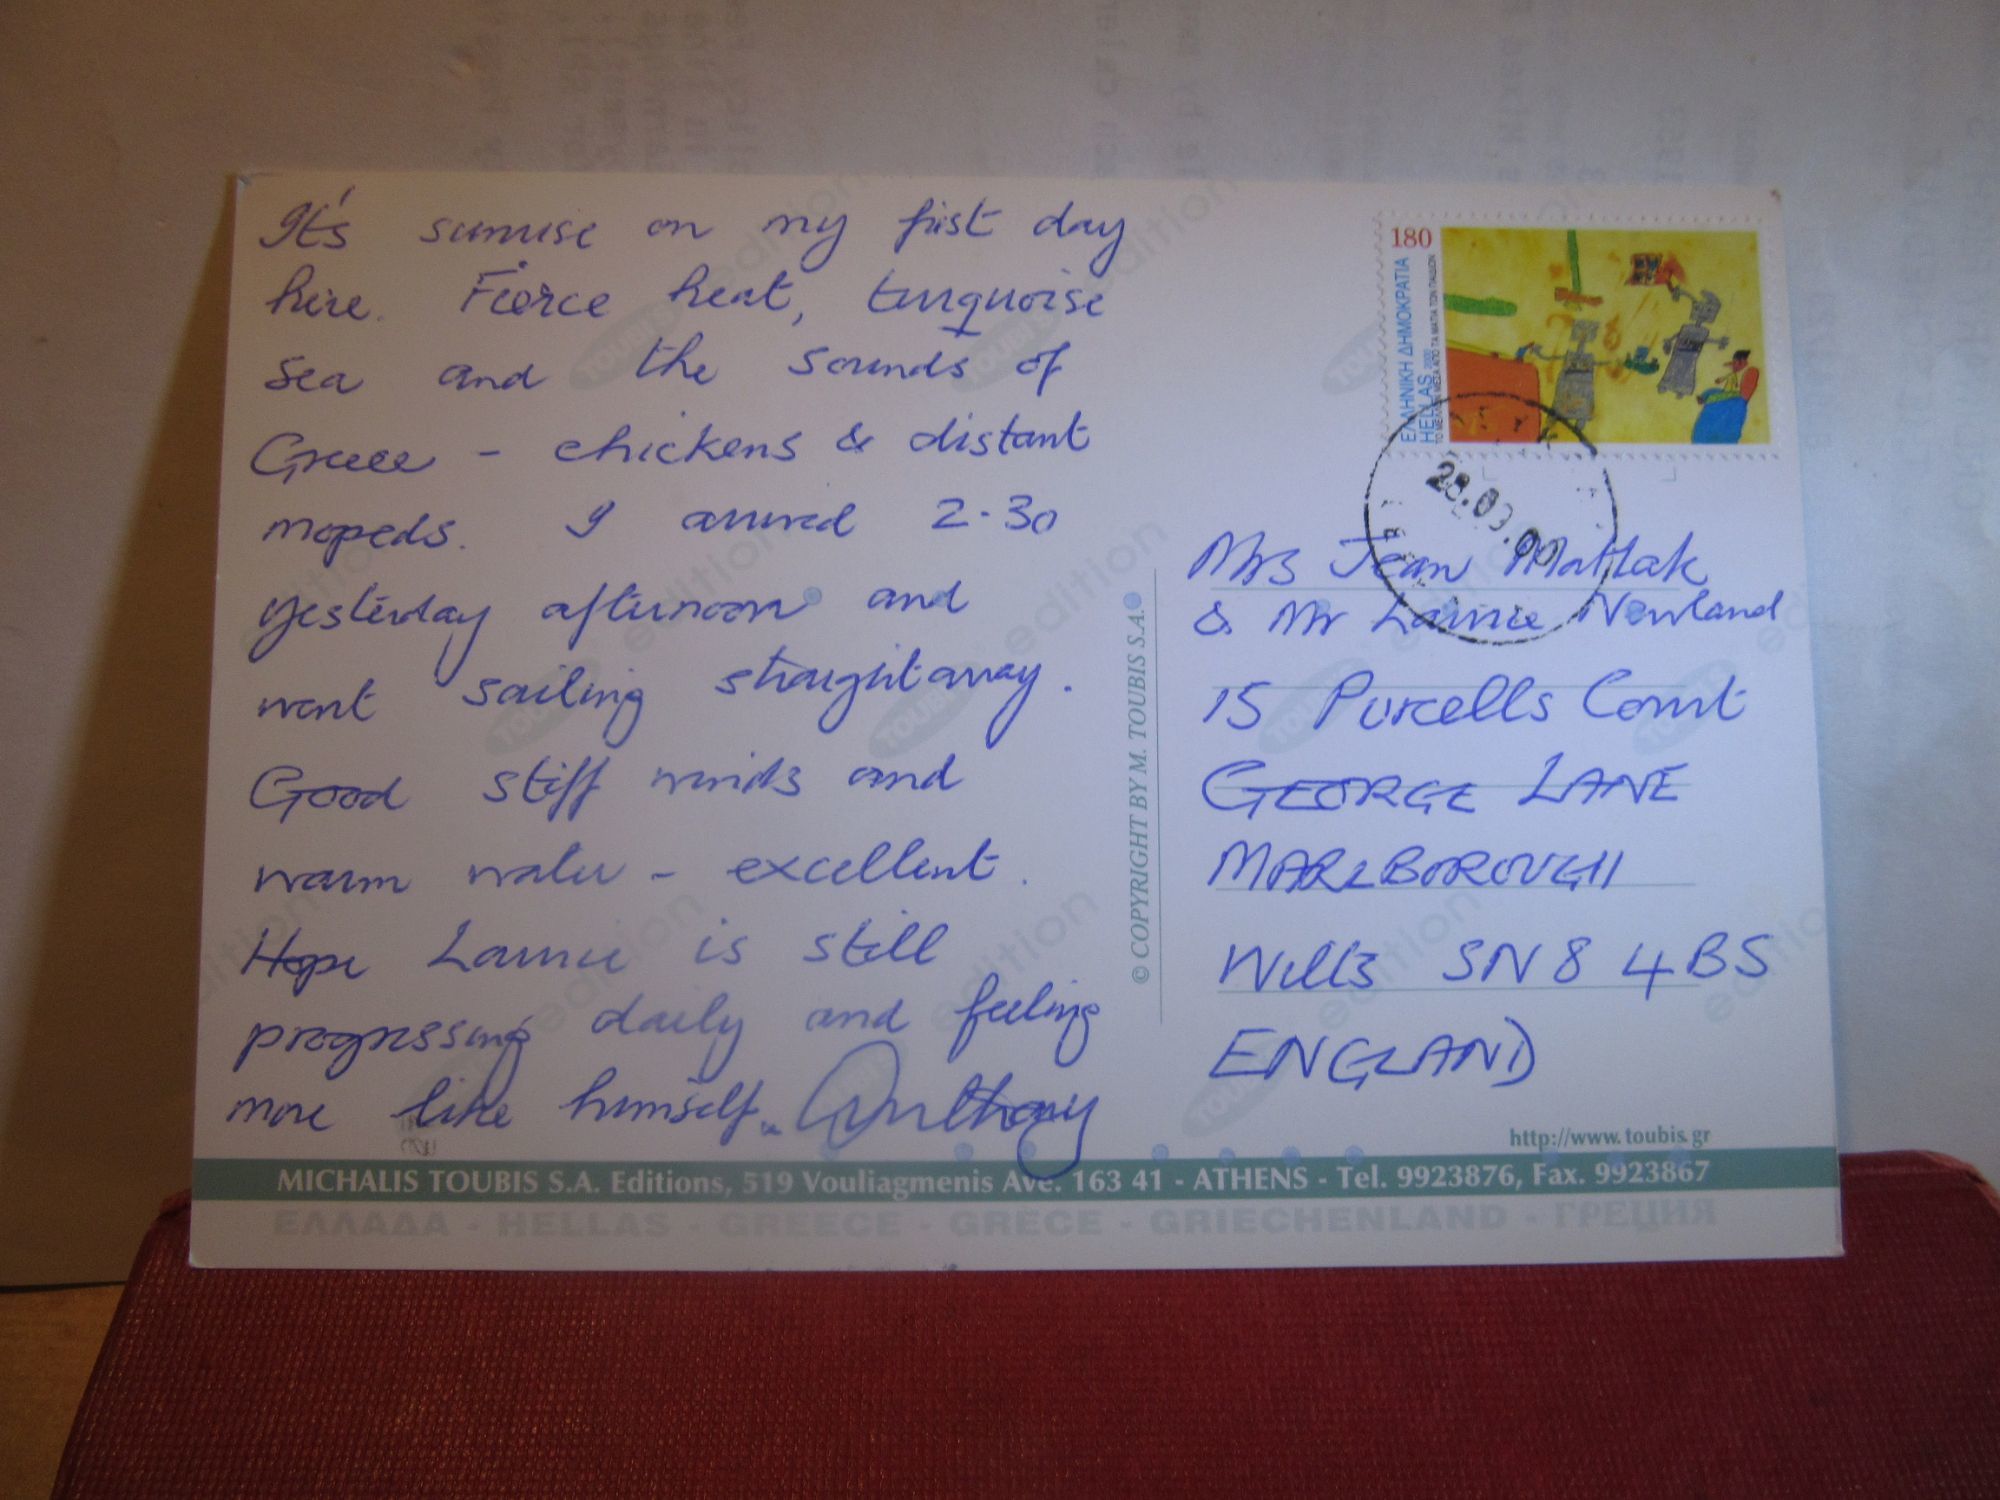 It's sunrise on my first day
here. Fierce heat, turquoise
sea and the sounds of
Greece - chickens & distant
mopeds. I arrived 2.30
yesterday afternoon and
went sailing straight away.
Good stiff winds and
warm water - excellent.
Hope Laurie is still
progressing daily and feeling
more like himself. Anthony
180
ΕΛΛΗΝΙΚΗ ΔΗΜΟΚΡΑΤΙΑ
HELLAS 2000
ΤΟ ΜΕΛΛΟΝ ΜΕΣΑ ΑΠΟ ΤΑ ΜΑΤΙΑ ΤΩΝ ΠΑΙΔΙΩΝ
Mrs Jean Matlak
& Mr Laurie Newland
15 Purcells Court
GEORGE LANE
MARLBOROUGH
Wilts SN8 4BS
ENGLAND
© COPYRIGHT BY M. TOUBIS S.A.
http://www.toubis.gr
MICHALIS TOUBIS S.A. Editions, 519 Vouliagmenis Ave. 163 41 - ATHENS - Tel. 9923876, Fax. 9923867
ΕΛΛΑΔΑ - HELLAS - GREECE - GRECE - GRIECHENLAND - ГРЕЦИЯ
TOUBIS edition